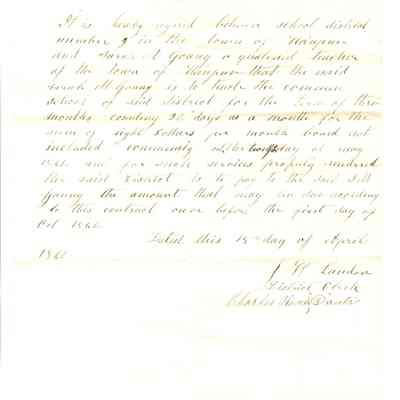 It is hereby agreed between school district
number 9 in the town of Hampton
and Sarah M Young a qualified teacher
of the town of Hampton that the said
Sarah M Young is to teach the common
school of said district for the Term of three
months counting 26 days as a month for the
sum of eight Dollars per month board not
included commencing on the day of may
1861 and for such services properly rendered
the said District is to pay to the said S M
Young the amount that may be due according
to this contract on or before the first day of
Oct 1861
Dated this 15 day of April
1861
J W Landon
District Clerk
Charles